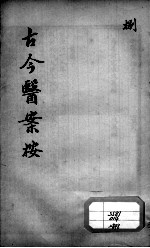 捌
古今醫案按